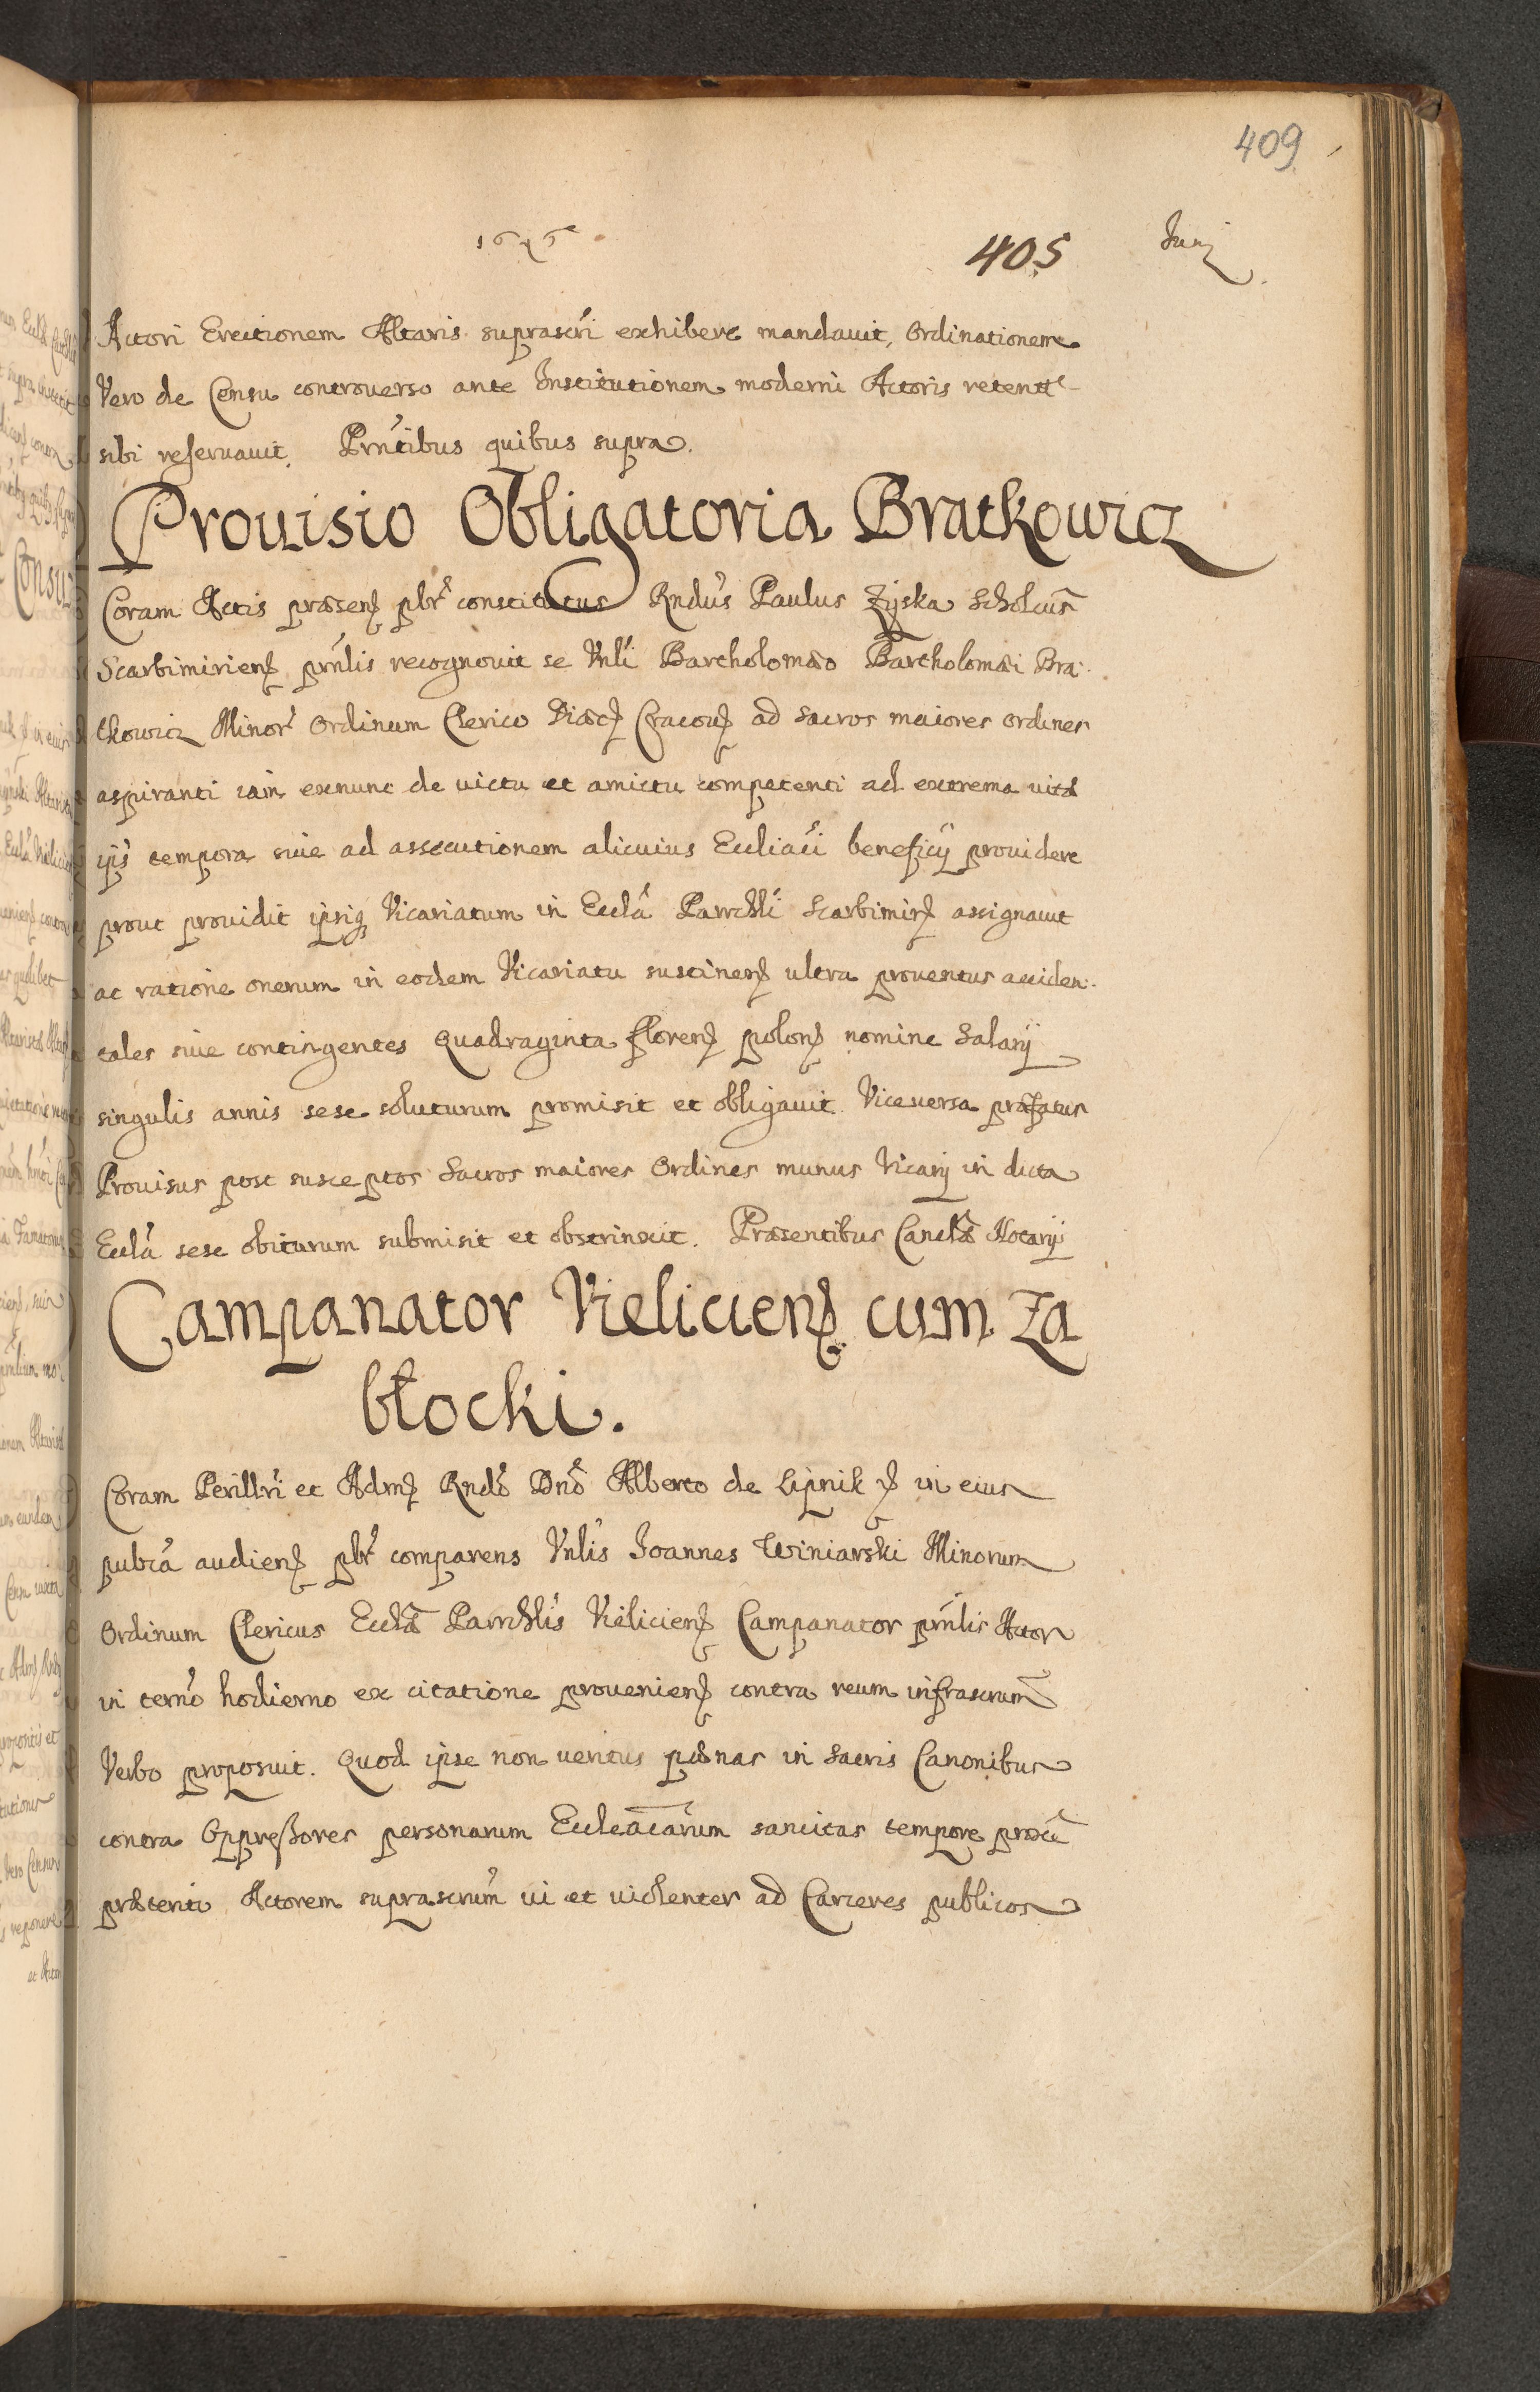 409
405
Junij
Actori Erectionem Altaris suprascri exhibere mandauit, Ordinationem
Vero de Censu controuerso ante Institutionem moderni Actoris retent
sibi reseruauit. Prntibus quibus supra.
Prouisio Obligatoria Bratkowicz
Coram Actis præsen pbr constitutus Rndus Paulus Zyska Scholcus
Scarbimirien prnlis recognouit se Vnli Bartholomæo Bartholomæi Bra-
tkowicz Minor Ordinum Clerico Diæc Cracou ad sacros maiores ordines
aspiranti iam exnunc de victu et amictu competenti ad extrema vitæ
ipis tempora siue ad assecutionem alicuius Eccliaci beneficij prouidere
prout prouidit ipsiq Vicariatum in Eccla Parrchli Scarbimir assignauit
ac ratione onerum in eodem Vicariatu sustinen ultra prouentus acciden-
tales siue contingentes Quadraginta floren polon nomine Salarij
singulis annis sese soluturum promisit et obligauit. Viceuersa præfatus
Prouisus post susceptos Sacros maiores Ordines munus Vicarij in dicta
Eccla sese obiturum submisit et obstrinxit. Præsentibus Canclæ Notarij
Campanator Vielicien cum Za
błocki.
Coram Perillri et Adm Rndo Dno Alberto de Lipnik in eius
publca audien pbr comparens Vnlis Joannes Winiarski Minorum
Ordinum Clericus Ecclæ Parrchlis Vielicien Campanator prnlis Actor
in termo hodierno ex citatione prouenien contra reum infrascrum
Verbo proposuit. Quod ipse non ueritus pænas in Sacris Canonibus
contra Oppressores personarum Eccleacarum sancitas tempore proxe
præterito Actorem suprascrum vi et violenter ad Carceres publicos